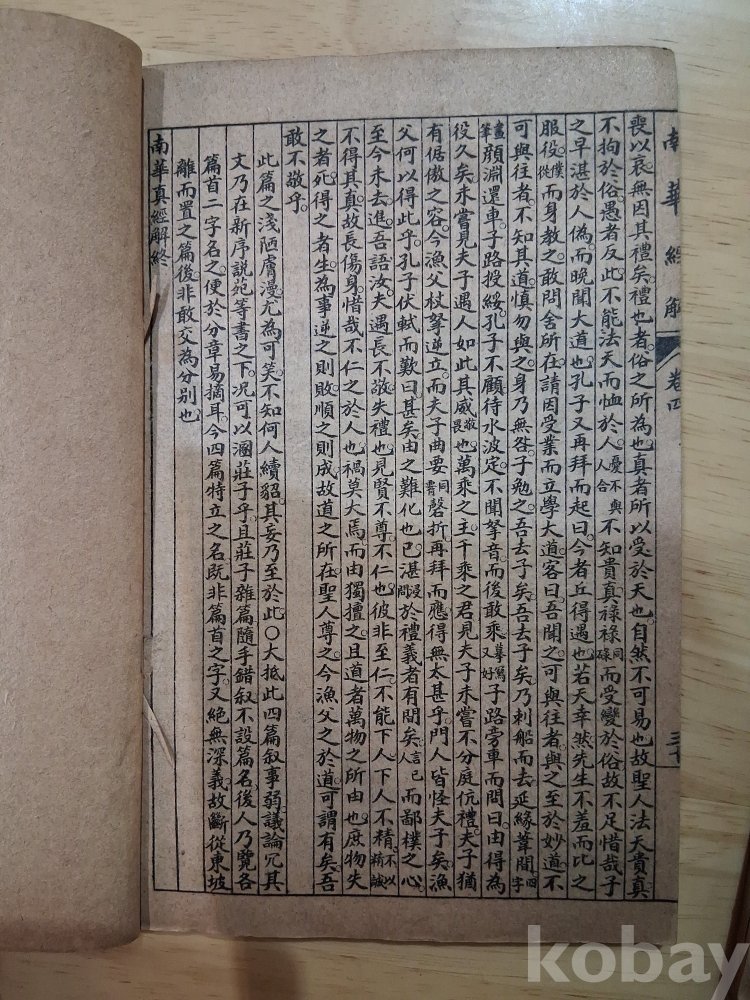 南華經解 卷四
喪以哀無因其禮矣禮也者俗之所為也真者所以受於天也自然不可易也故聖人法天貴真
不拘於俗愚者反此不能法天而恤於人憂不與人合不知貴真祿祿同碌而受變於俗故不足惜哉子
之早湛於人偽而晚聞大道也孔子又再拜而起曰今者丘得遇也若天幸然先生不羞而比之
服役僕從而身教之敢問舍所在請因受業而立學大道客曰吾聞之可與往者與之至於妙道不
可與往者不知其道慎勿與之身乃無咎子勉之吾去子矣吾去子矣乃刺船而去延緣葦間四字
畫筆顏淵還車子路投綏孔子不顧待水波定不聞拏音而後敢乘摹寫又好子路旁車而問曰由得為
役久矣未嘗見夫子遇人如此其威敬畏也萬乘之主千乘之君見夫子未嘗不分庭伉禮夫子猶
有倨傲之容今漁父杖拏逆立而夫子曲要同腰磬折再拜而應得無太甚乎門人皆怪夫子矣漁
父何以得此乎孔子伏軾而歎曰甚矣由之難化也已湛浸於禮義者有間矣言已而鄙樸之心
至今未去進吾語汝夫遇長不敬失禮也見賢不尊不仁也彼非至仁不能下人下人不精不以精誠
不得其真故長傷身惜哉不仁之於人也禍莫大焉而由獨擅之且道者萬物之所由也庶物失
之者死得之者生為事逆之則敗順之則成故道之所在聖人尊之今漁父之於道可謂有矣吾
敢不敬乎
此篇之淺陋膚漫尤為可笑不知何人續貂其妄乃至於此〇大抵此四篇叙事弱議論冗其
文乃在新序說苑等書之下况可以溷莊子乎且莊子雜篇隨手錯叙不設篇名後人乃覽各
篇首二字名之便於分章易摘耳今四篇特立之名既非篇首之字又絕無深義故斷從東坡
離而置之篇後非敢交為分別也
南華真經解終
kobay